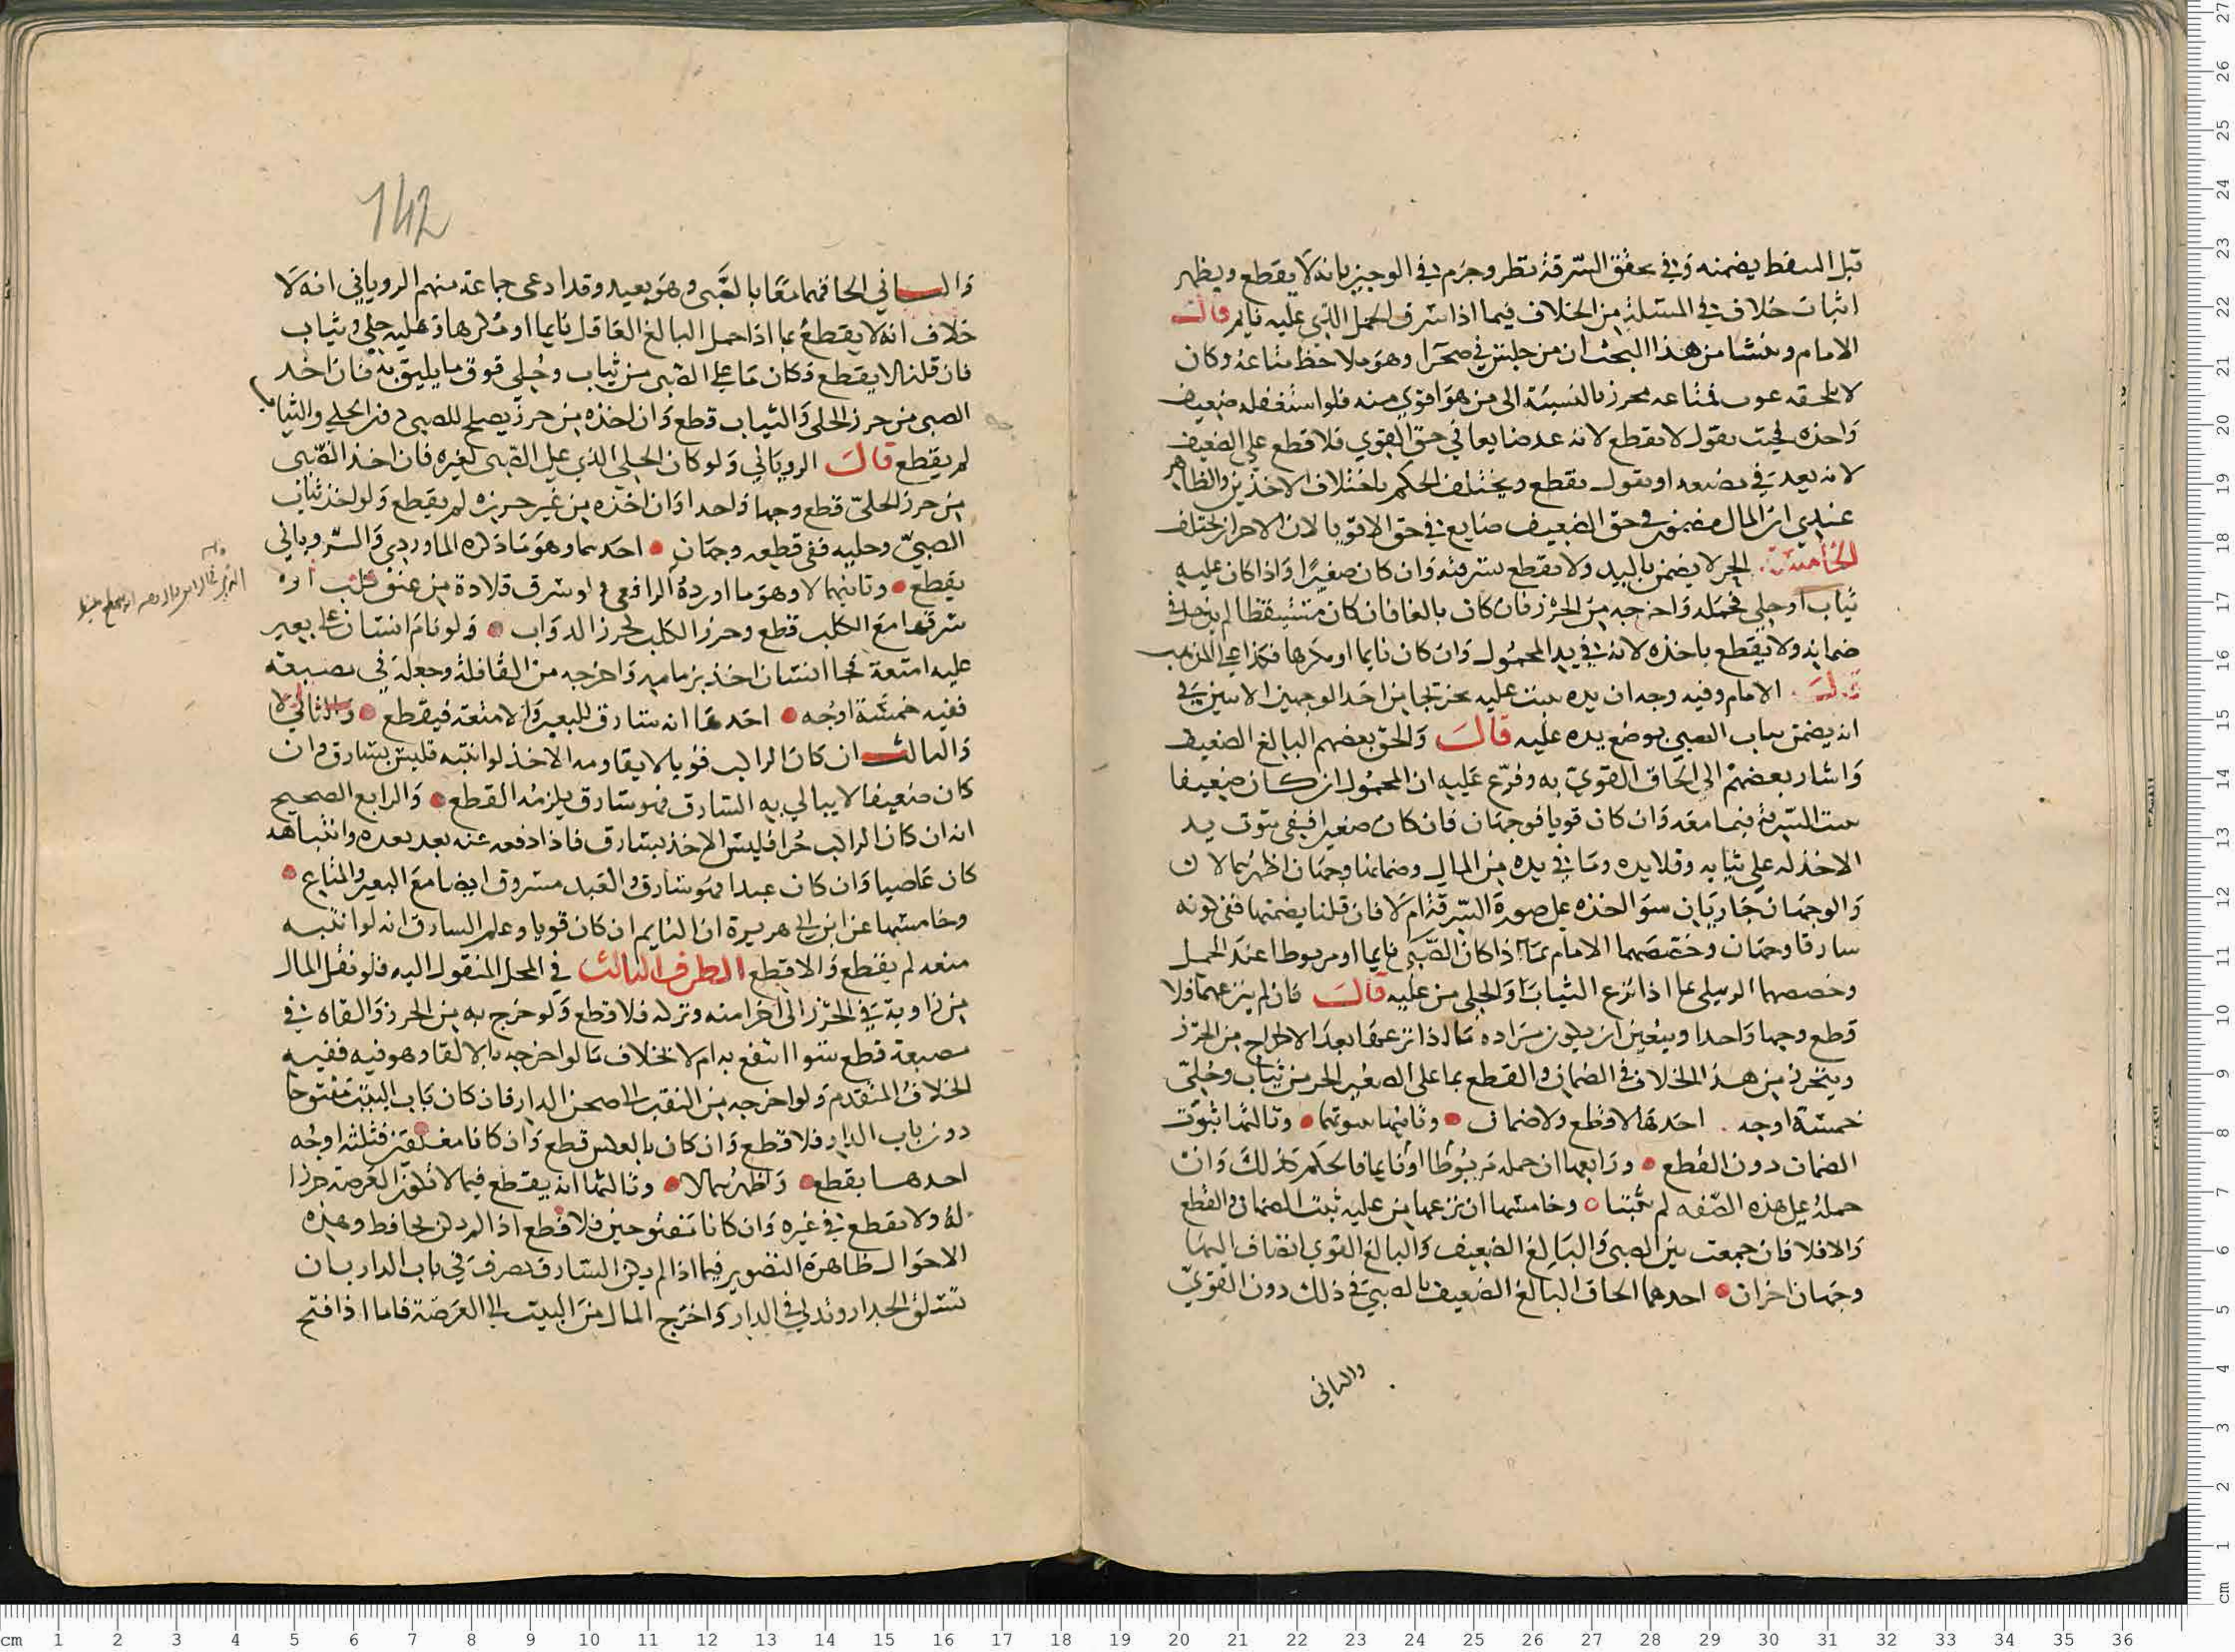 قبل السفط يضمنه وفي تحقق السرقة نظر وجزم في الوجيز بانه لا يقطع ويظهر
اثبات خلاف في المسئلة من الخلاف فيما اذا سرق الجمل الذي عليه نايم قال
الامام ومنشا من هذا البحث ان من جلس في صحرا وهو ملاحظ متاعه وكان
لا يلحقه غوث فمتاعه محرز بالنسبة الى من هو اقوى منه فلو استغفله ضعيف
واخذه فحيث نقول لا يقطع لانه عد ضايعا في حق القوي فلا قطع على الضعيف
لانه يعد في مضيعه او نقول يقطع ويختلف الحكم باختلاف الاخذين والظاهر
عندي ان المال مضمون في حق الضعيف ضايع في حق الاقويا لان الاحراز يختلف
الخامسة الحر لا يضمن باليد ولا يقطع بسرقته وان كان صغيرا واذا كان عليه
ثياب او حلي فحمله واخرجه من الحرز فان كان بالغا فان كان مستيقظا لم يدخل في
ضمانه ولا يقطع باخذه لانه في يد المحمول وان كان نايما او مكرها فكذا على المذهب
قال الامام وفيه وجه ان يده ثبت عليه تخريجا من احد الوجهين الاتيين في
انه يضمن ثياب الصبي بوضع يده عليه قال والحق بعضهم البالغ الضعيف
واشار بعضهم الى الحاق القوي به وفرع عليه ان المحمول ان كان ضعيفا
ثبت السرقة فيما معه وان كان قويا فوجهان فان كان صغيرا ففي ثبوت يد
الاخذ له على ثيابه وقلايده وما في يده من المال وضمانها وجهان اظهرهما لا
والوجهان جاريان سوا اخذه على صورة السرقة ام لا فان قلنا يضمنها ففي كونه
سارقا وجهان وخصصهما الامام بما اذا كان الصبي نايما او مربوطا عند الحمل
وخصصهما الزبيلي بما اذا نزع الثياب والحلي من عليه قال فان لم ينزعهما فلا
قطع وجها واحدا ويتعين ان يكون مراده ما اذا نزعها بعد الاخراج من الحرز
ويتحرر من هذا الخلاف في الضمان والقطع بما على الصغير الحر من ثياب وحلي
خمسة اوجه احدها لا قطع ولا ضمان وثانيها ثبوتهما وثالثها ثبوت
الضمان دون القطع ورابعها ان حمله مربوطا او نايما فالحكم كذلك وان
حمله على هذه الصفة لم يثبتا وخامسها ان نزعها من عليه ثبت الضمان والقطع
والا فلا فان جمعت بين الصبي والبالغ الضعيف والبالغ القوي انضاف اليها
وجهان اخران احدهما الحاق البالغ الضعيف بالصبي في ذلك دون القوي
والثاني
142
والثاني الحاقهما معا بالصبى وهو بعيد وقد ادعى جماعة منهم الروياني انه لا
خلاف انه لا يقطع بما اذا حمل البالغ العاقل نايما او مكرها وعليه حلي وثياب
فان قلنا لا يقطع وكان ما على الصبى من ثياب وحلي فوق ما يليق به فان اخذ
الصبى من حرز الحلى والثياب قطع وان اخذه من حرز يصلح للصبى دون الحلى والثياب
لم يقطع قال الروياني ولو كان الحلي الذي على الصبى لغيره فان اخذ الصبى
من حرز الحلي قطع وجها واحدا وان اخذه من غير حرزه لم يقطع ولو اخذ ثياب
الصبي وحليه ففي قطعه وجهان احدهما وهو ما ذكره الماوردي والروياني
يقطع وثانيهما لا وهو ما اورده الرافعي ولو سرق قلادة من عنق كلب او
سرقها مع الكلب قطع وحرز الكلب كحرز الدواب ولو نام انسان على بعير
عليه امتعة فجا انسان اخذ بزمامه واخرجه من القافلة وجعله في مضيعة
ففيه خمسة اوجه احدها انه سارق للبعير والامتعة فيقطع والثاني لا
والثالث ان كان الراكب قويا لا يقاومه الاخذ لو انتبه فليس بسارق وان
كان ضعيفا لا يبالي به السارق فهو سارق يلزمه القطع والرابع الصحيح
انه ان كان الراكب حرا فليس الاخذ بسارق فاذا دفعه عنه بعد بعده وانتباهه
كان غاصبا وان كان عبدا فهو سارق والعبد مسروق ايضا مع البعير والمتاع
وخامسها عن ابن ابي هريرة ان النايم ان كان قويا وعلم السارق انه لو انتبه
منعه لم يقطع والا قطع الطرف الثالث في المحل المنقول اليه فلو نقل المال
من زاوية في الحرز الى اخرا منه وتركه فلا قطع ولو خرج به من الحرز والقاه في
مضيعة قطع سوا انتفع به ام لا بخلاف ما لو اخرجه بالالقا وهو فيه ففيه
الخلاف المتقدم ولو اخرجه من النقب الى صحن الدار فان كان باب البيت مفتوحا
دون باب الدار فلا قطع وان كان بالعكس قطع وان كانا مغلقين فثلثة اوجه
احدها يقطع واظهرهما لا وثالثها انه يقطع فيما لا تكون العرصة حرزا
له ولا يقطع في غيره وان كانا مفتوحين فلا قطع اذا لم يكن محافظ وهذه
الاحوال ظاهرة التصوير فيما اذا لم يكن السارق تصرف في باب الدار بان
تسلق الجدار وتدلى في الدار واخرج المال من البيت الى العرصة فاما اذا فتح